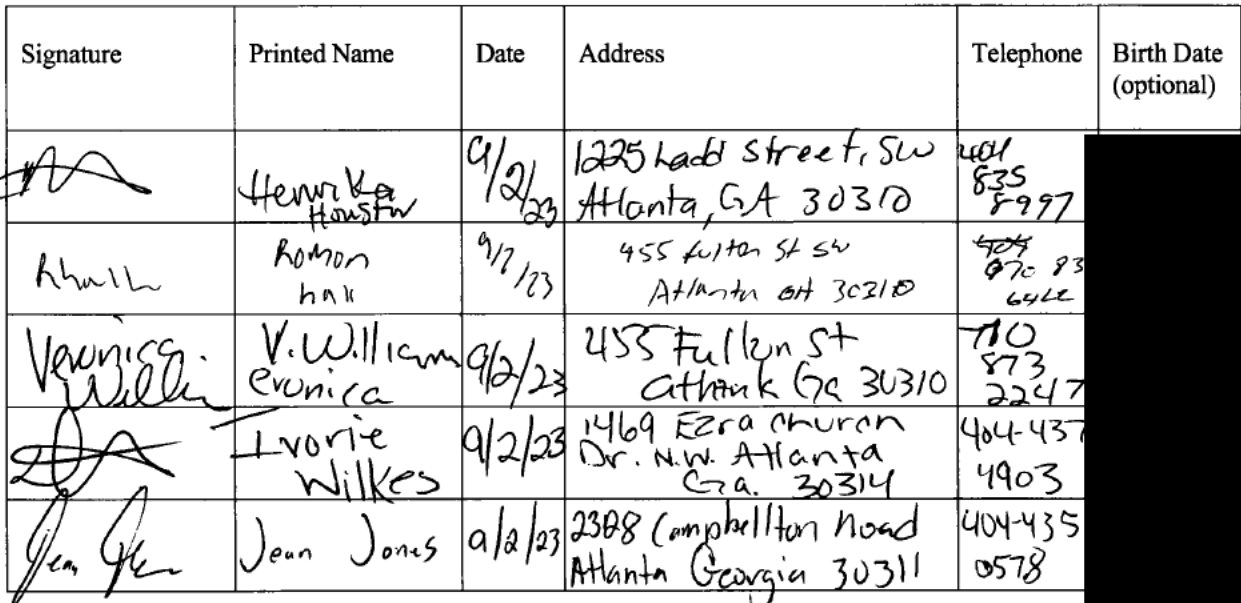 Signature
Printed Name
Date
Address
Telephone
Birth Date
(optional)
Henrika
Houston
9/2/23
1225 Ladd Street, SW
Atlanta, GA 30310
404
835
8997
Romon
hall
9/2/23
455 fulton St SW
Atlanta GA 30310
404
970 83
Veronica
V. William
eronica
9/2/23
455 Fulton St
Ga 30310
873
2247
Ivorie
Wilkes
9/2/23
1469 Ezra Church
Dr. N.W. Atlanta
Ga. 30314
404-437
4903
Jean
Jean Jones
9/2/23
Campbellton Road
Atlanta Georgia 30311
404-435
0578